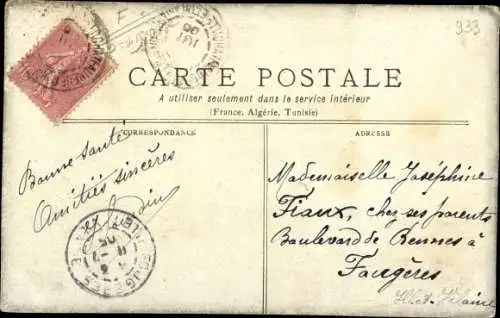 933
CARTE POSTALE
A utiliser seulement dans le service intérieur
(France, Algérie, Tunisie)
CORRESPONDANCE
ADRESSE
Bonne Santé
Amitiés sincères
Mademoiselle Joséphine
Fiaux, chez ses parents
Boulevard de Rennes à
Fougères
Ille et Vilaine
FOUGERES